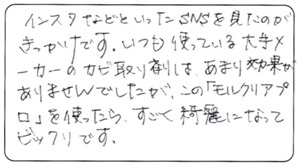 インスタなどといったSNSを見たのが
きっかけです。いつも使っている大手メ
ーカーのカビ取り剤は、あまり効果が
ありませんでしたが、この「モルクリアプ
ロ」を使ったら、すごく綺麗になって
ビックリです。